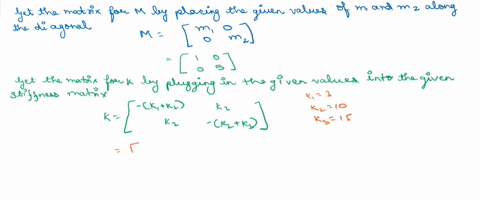 Get the matrix for M by placing the given values of m and m2 along
the diagonal
M = [ m1 0
0 m2 ]
= [ 1 0
0 5 ]
Get the matrix for k by plugging in the given values into the given
stiffness matrix
k = [ -(k1+k2) k2
k2 -(k2+k3) ]
k1 = 3
k2 = 10
k3 = 15
= [